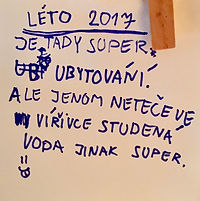 LÉTO 2017
JE TADY SUPER.
UBYTOVÁNÍ.
ALE JENOM NETEČE VE
VÍŘIVCE STUDENÁ
VODA JINAK SUPER.